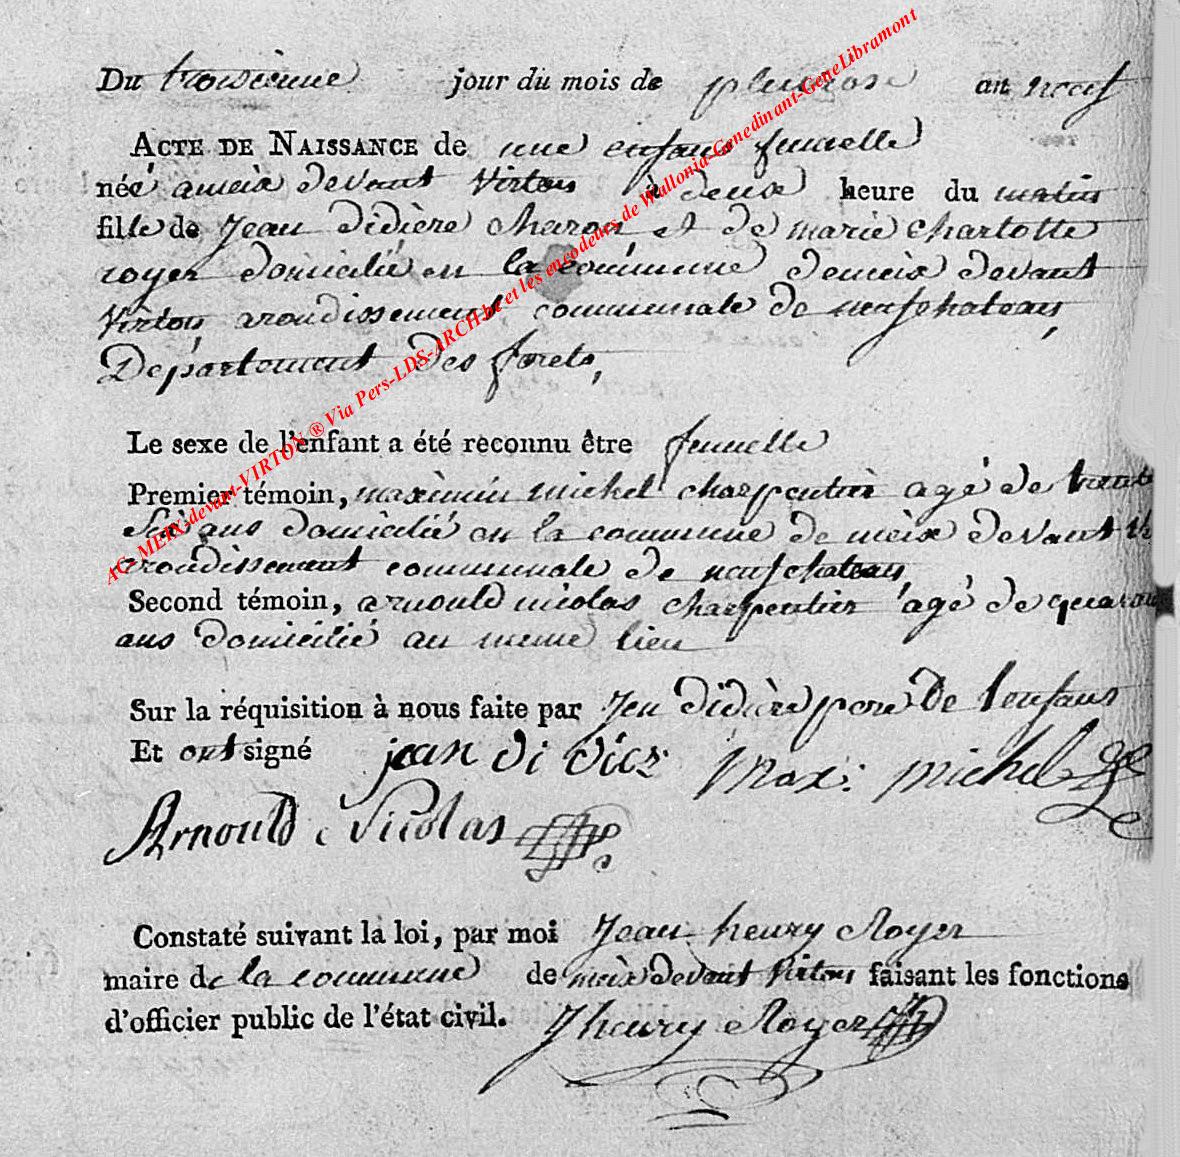 Du troisienne jour du mois de pluviose an neuf
ACTE DE NAISSANCE de une enfans femelle
née ameix devant Virton à deux heure du matin
fille de Jean didière charon et de marie charlotte
royer domicilié en la commune demeix devant
Virton, arondissement communale de neufchateau,
Departement des forets,
Le sexe de l'enfant a été reconnu être femelle
Premier témoin, maximin michel charpentier agé de trente
Six ans domicilié en la commune de meix devant
arondissement communale de neufchateau,
Second témoin, arnould nicolas charpentier agé de
ans domicilié au meme lieu
Sur la réquisition à nous faite par Jen didière pere De lenfans
Et ont signé jean di dier Max: michel
Arnould Nicolas
Constaté suivant la loi, par moi Jean henry Royer
maire de la commune de meix devant Virton faisant les fonctions
d'officier public de l'état civil. Jhenry Royer
AC. MEIX-devant-VIRTON ® Via Pers-LDS-ARCH.be et les encodeurs de Wallonia-Genedinant-GeneLibramont